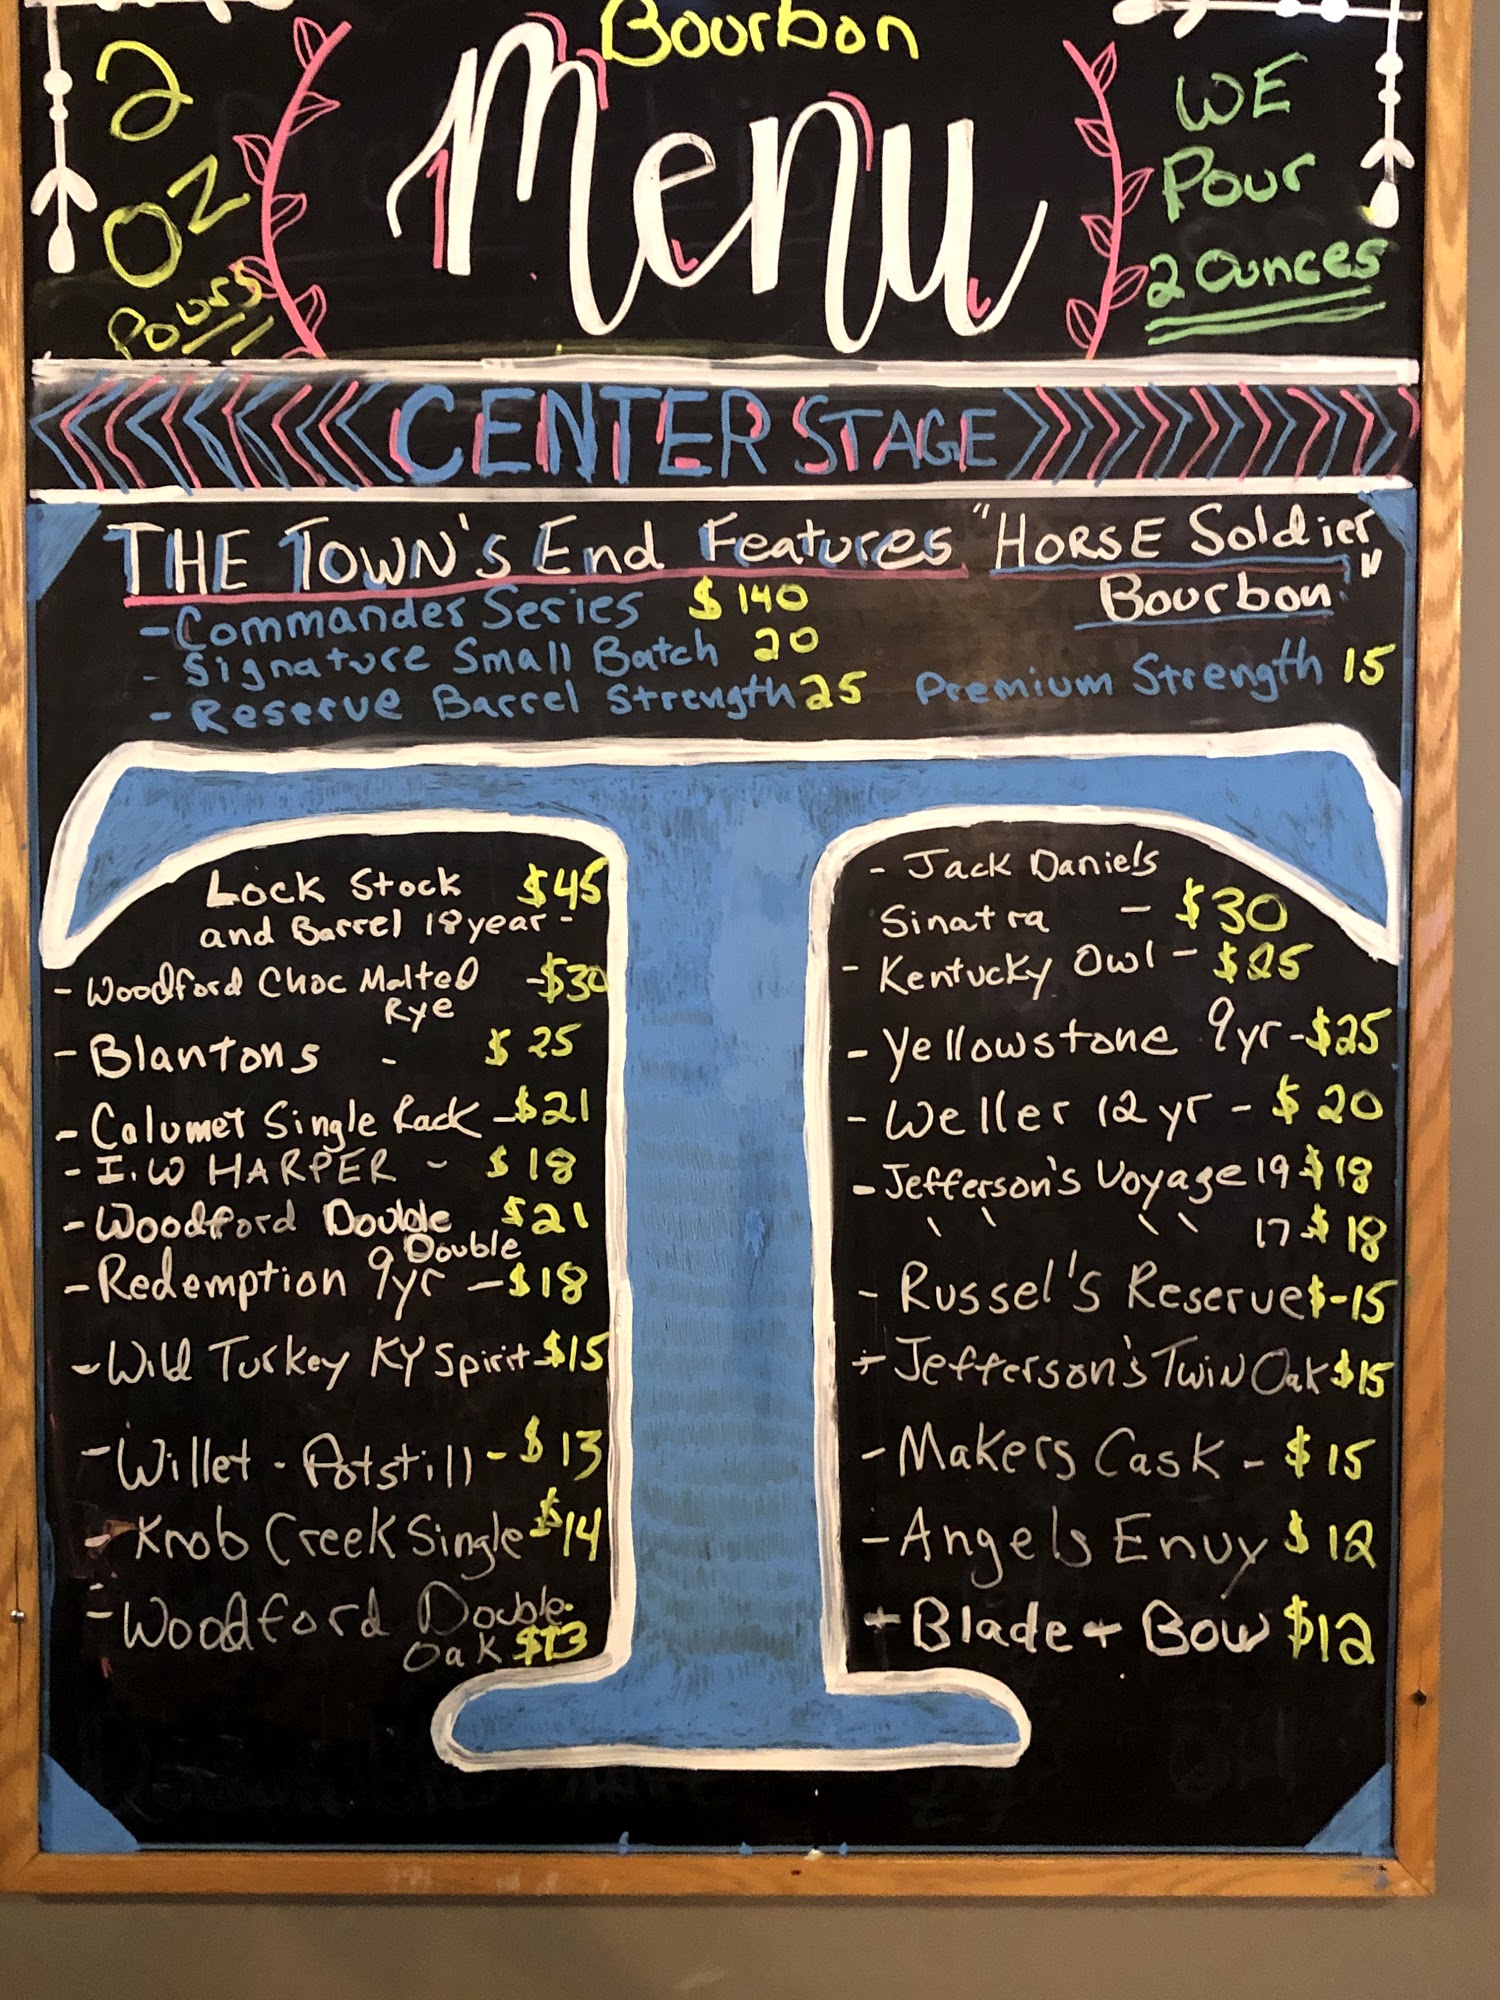 Bourbon
Menu
2
OZ
Pours
WE
Pour
2 Ounces
CENTER STAGE
THE TOWN'S End Features "HORSE Soldier
Bourbon"
- Commander Series $140
- Signature Small Batch 20
- Reserve Barrel Strength 25 Premium Strength 15
Lock Stock $45
and Barrel 18 year -
- Woodford Choc Malted - $30
Rye
- Blantons - $25
- Calumet Single Rack - $21
- I.W HARPER - $18
- Woodford Double $21
Double
- Redemption 9yr - $18
- Wild Turkey KY Spirit - $15
- Willet - Potstill - $13
- Knob Creek Single $14
- Woodford Double
Oak $13
T
- Jack Daniels
Sinatra - $30
- Kentucky Owl - $25
- Yellowstone 9yr - $25
- Weller 12 yr - $20
- Jefferson's Voyage 19 $18
\ \ \ \ 17 $18
- Russel's Reserve $-15
- Jefferson's Twin Oak $15
- Makers Cask - $15
- Angels Envy $12
- Blade + Bow $12